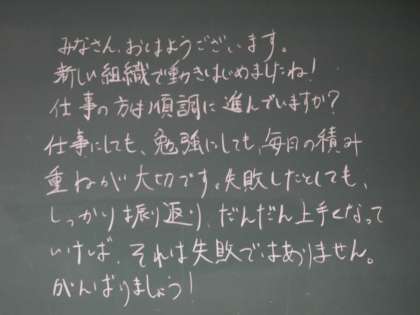 みなさん、おはようございます。
新しい組織で動きはじめましたね!
仕事の方は順調に進んでいますか?
仕事にしても、勉強にしても、毎日の積み
重ねが大切です。失敗したとしても、
しっかり振り返り、だんだん上手くなって
いけば、それは失敗ではありません。
がんばりましょう!